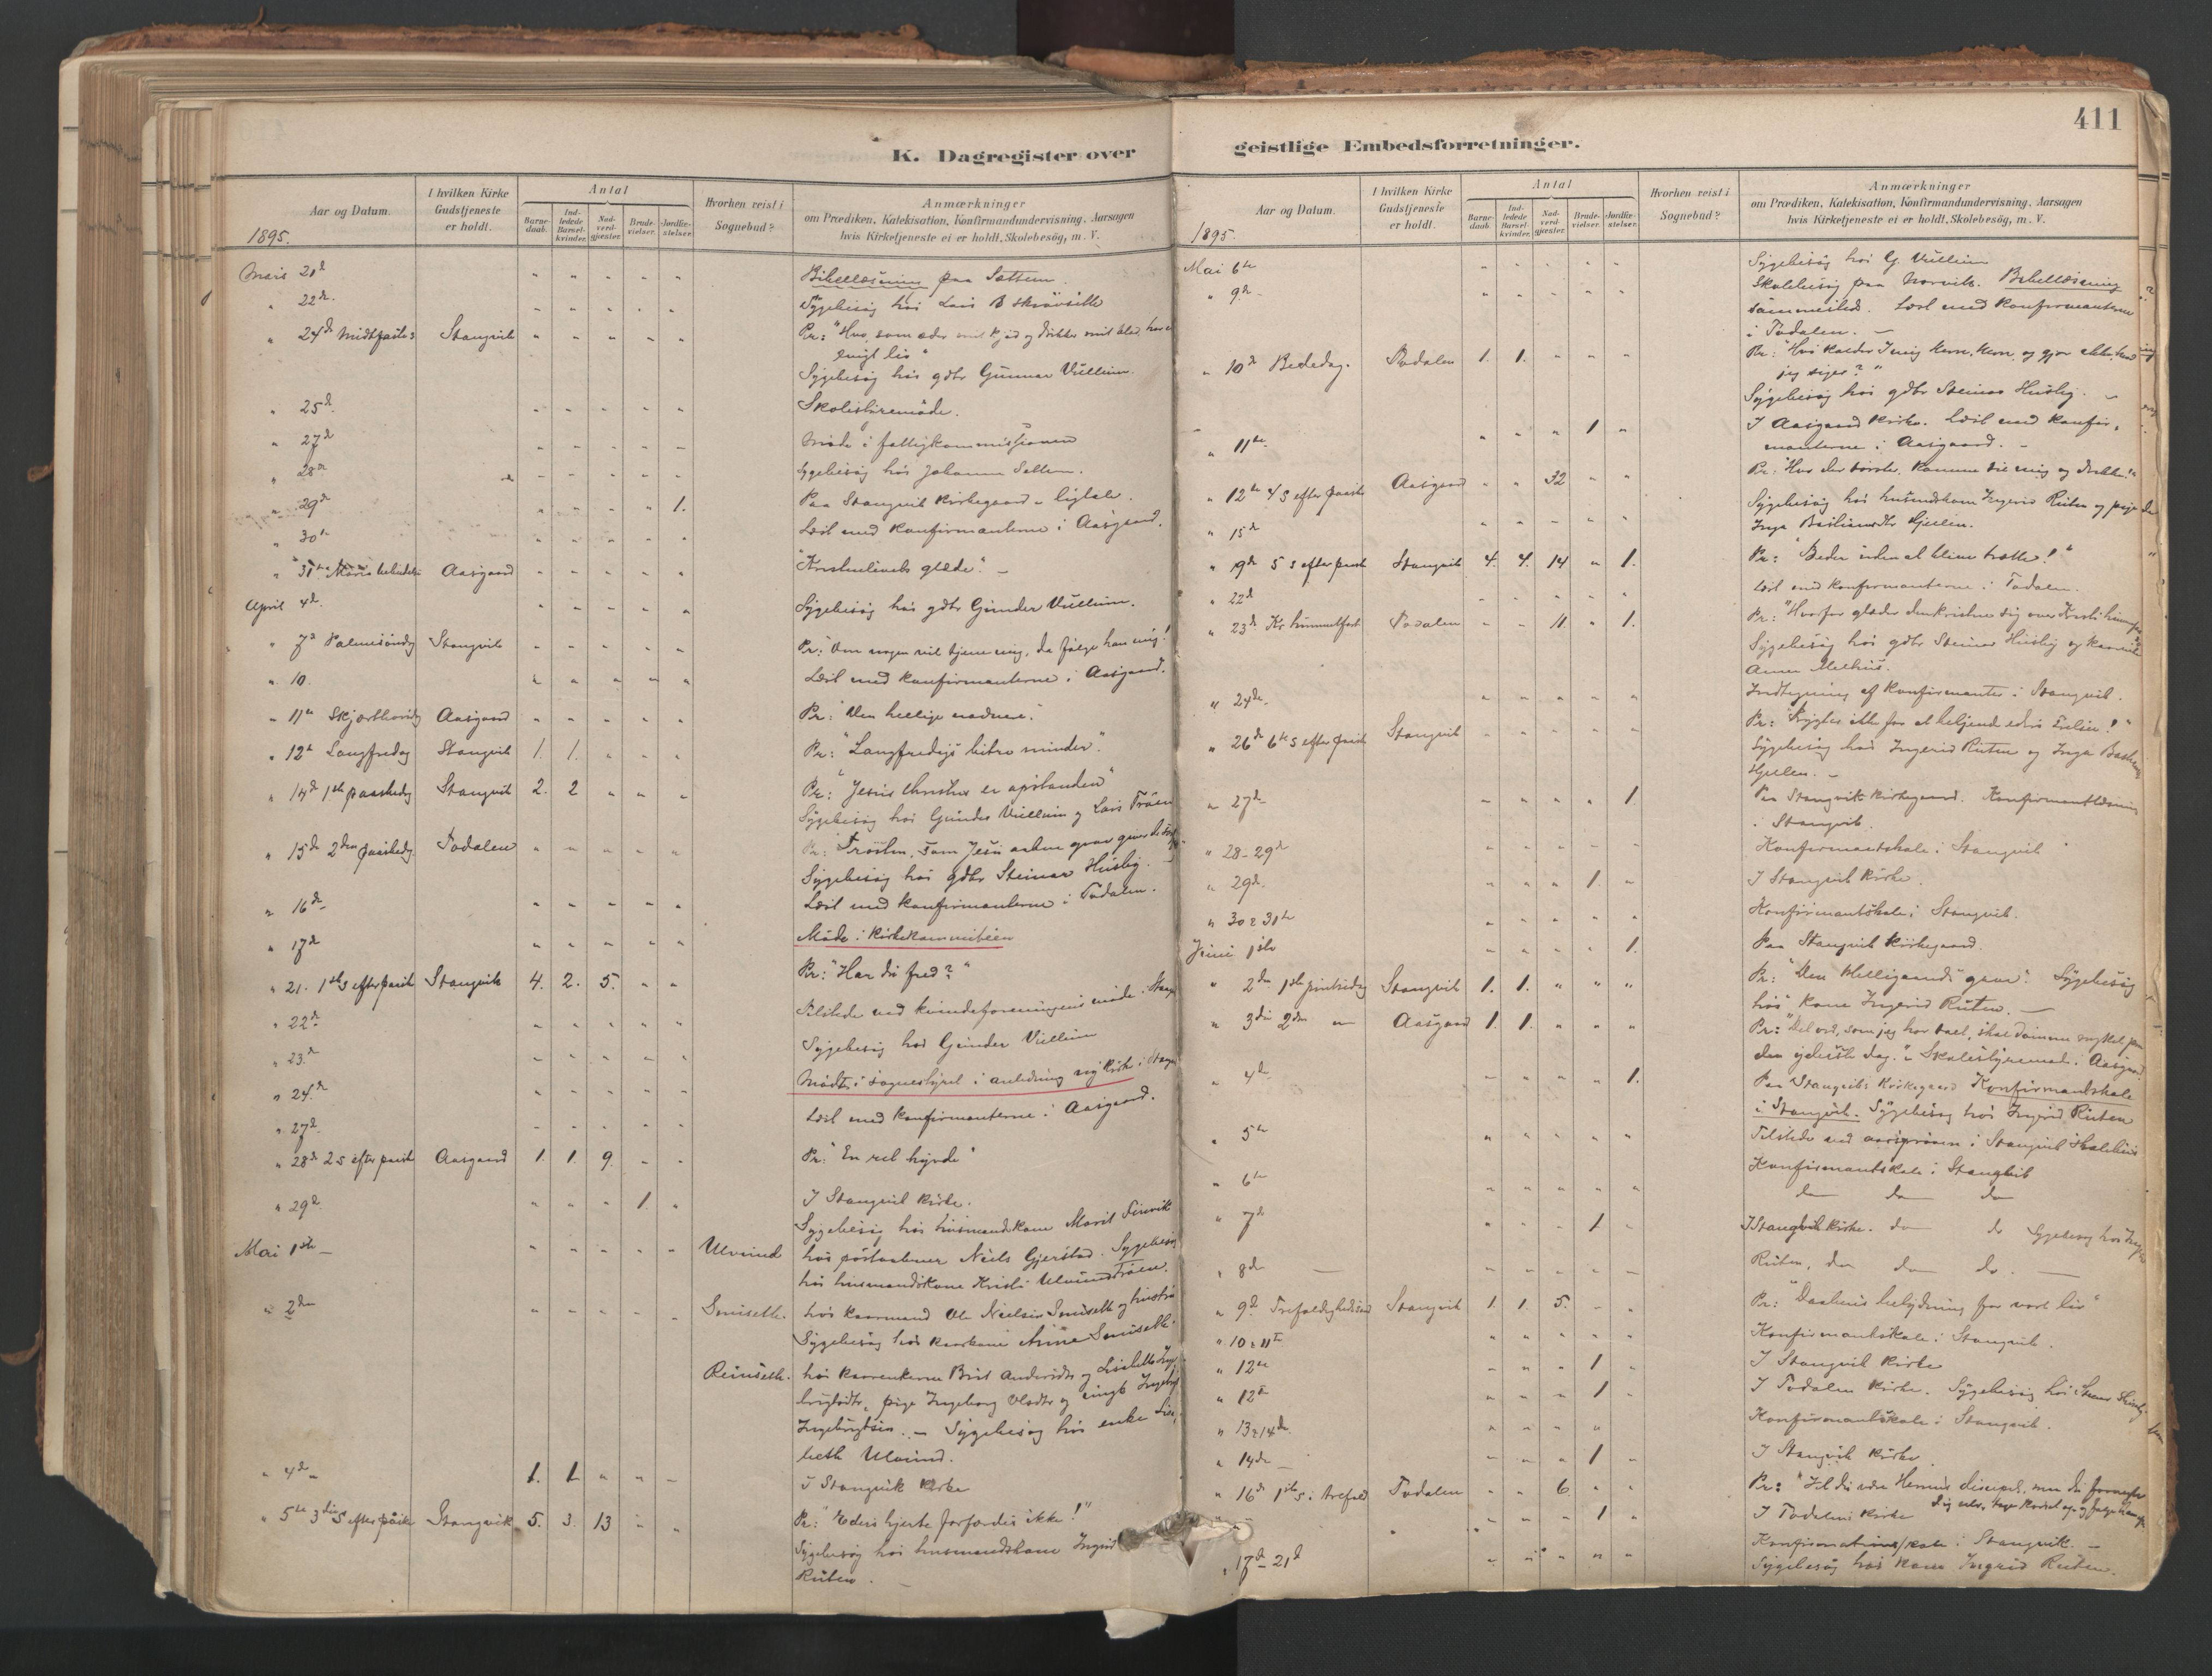 K. Dagregister over
Aar og Datum.
I hvilken Kirke Gudstjeneste er holdt.
Antal
Barnedaab.
Indledede Barselkvinder.
Nadverdgjæster.
Brudevielser.
Jordfæstelser.
Hvorhen reist i Sognebud?
Anmærkninger
om Prædiken, Katekisation, Konfirmandundervisning, Aarsagen
hvis Kirketjeneste ei er holdt, Skolebesög, m. V.
1895.
21d " " " " " Bibellæsning paa Sættem.
" 22d " " " " " Sygebesög hos Lars
" 24d Midtfaste s Stangvik " " " " " Pr: "Hvo, som æder mit kjød og drikker mit blod, har et
evigt liv"
Sygebesög hos gdbr Gunnar Vullum.
" 25d " " " " " Skolestiremöde.
" 27d " " " " " Möde i fattigkommissionen
" 28d " " " " " Sygebesög hos Johanne Settem.
" 29d " " " " 1. Paa Stangvik kirkegaard - ligtale.
" 30te " " " " " Læst med konfirmanterne i Aasgaard.
" 31te Maria Aasgaard " " " " " "Kristenlivets glæde". -
April 4d " " " " " Sygebesög hos gdbr Gunder Vullum.
" 7d Palmesöndag Stangvik " " " " " Pr: "Om nogen vil tjene mig, da følge han mig!
" 10. " " " " " Læst med konfirmanterne i Aasgaard.
" 11te Skjærthorsdag Aasgaard " " " " " Pr: "Den hellige nadvere".
" 12te Langfredag Stangvik 1. 1. " " " Pr: "Langfredags bitre minder".
" 14d 1ste paaskedag Stangvik 2. 2 " " " Pr: "Jesus Christus er opstanden"
Sygebesög hos Gunder Vullum og Lars Tröen
" 15de 2den paaskedag Todalen " " " " " Pr: Trösten, som Jesu aabne grav giver
Sygebesög hos gdbr Steinar Husby. -
" 16de " " " " " Læst med konfirmanterne i Todalen.
" 17d " " " " " Möde i kirkekommiteen
" 21. 1ste s efter paaske Stangvik 4. 2. 5. " " Pr: "Har du fred?"
" 22d " " " " " Tilstede ved kvindeforeningens möde i Stangv
" 23.d " " " " " Sygebesög hos Gunder Vullum
" 24.d " " " " " Mödte i sognestyret i anledning ny kirke i Stangv
" 27d " " " " " Læst med konfirmanterne i Aasgaard.
" 28d 2 s efter paaske Aasgaard 1. 1. 9. " " Pr: "En ret hyrde"
" 29d " " " 1. " I Stangvik kirke.
Sygebesög hos husmandskone Marit
Mai 1ste " " " " " Ulvund hos Niels Gjerstad. Sygebesög
hos husmandskone Kristi Ulvundtröen.
" 2den " " " " " Smisetb. hos kaarmand Ole Nielsen Smisetb og hustru
Sygebesög hos kaarkone Anne Smisetb.
Reinsetb. hos Brit Andersdtr og Lisbet Inge
brigtsdtr, pige Ingeborg Olsdtr og
Ingebrigtsen. - Sygebesög hos enke Lis
beth Ulvund.
" 4de 1. 1 " " " I Stangvik kirke
" 5te 3die s efter paaske Stangvik 5. 3. 13 " " Pr: "Eders hjerte forfærdes ikke!"
Sygebesög hos husmandskone Ingrid
Ruten.
geistlige Embedsforretninger.
411
Aar og Datum.
I hvilken Kirke Gudstjeneste er holdt.
Antal
Barnedaab.
Indledede Barselkvinder.
Nadverdgjæster.
Brudevielser.
Jordfæstelser.
Hvorhen reist i Sognebud?
Anmærkninger
om Prædiken, Katekisation, Konfirmandundervisning, Aarsagen
hvis Kirketjeneste ei er holdt, Skolebesög, m. V.
1895.
Mai 6te " " " " " Sygebesög hos G. Vullum
" 9de " " " " " Skolebesög paa Norvik. Bibellæsning
sammesteds. Læst med konfirmanterne
i Todalen. -
" 10de Bededag. Todalen 1. 1. " " " Pr: "Hvi kalder I mig Herre, Herre, og gjør ikke, hvad
jeg siger?"
Sygebesög hos gdbr Steinar Husby. -
" 11te " " " 1 " I Aasgaard kirke. Læst med konfir-
manterne i Aasgaard. -
" 12te 4 s efter paaske Aasgaard " " 32 " " Pr: "Hvo der tørster, komme til mig og drikke!"
" 15d " " " " " Sygebesög hos husmandskone Ingrid Ruten og pige
Inga
" 19de 5 s efter paaske Stangvik 4. 4. 14 " 1. Pr: "Beder uden at blive trætte!"
" 22d " " " " " Læst med konfirmanterne i Todalen.
" 23de Kr. himmelfart Todalen " " 11. " 1. Pr: "Hvorfor glæder den kristne sig over Kristi
Sygebesög hos gdbr Steinar Husby og
Melhus.
" 24de " " " " " Indtegning af konfirmanter i Stangvik.
" 26de 6te s efter paaske Stangvik " " " " " Pr: "Frygter ikke for at bekjende eders frelser!"
Sygebesög hos Ingrid Ruten og Inga
" 27de " " " " 1. Paa Stangvik kirkegaard. Konfirmantlæsning
i Stangvik.
" 28-29de " " " " " Konfirmantskole i Stangvik
" 29de " " " 1. " I Stangvik kirke.
" 30 & 31te " " " " " Konfirmantskole i Stangvik.
Juni 1ste " " " " 1. Paa Stangvik kirkegaard.
" 2den 1ste pintsedag Stangvik 1. 1. " " " Pr: "Den Helligaands gave". Sygebesög
hos kone Ingrid Ruten. -
" 3die 2den " Aasgaard 1. 1. " " " Pr: "Det ord, som jeg har talt, skal dømme
den yderste dag." - Skolestyremöde i Aasgaard
" 4de " " " " 1. Paa Stangviks kirkegaard Konfirmantskole
i Stangvik. Sygebesög hos Ingrid Ruten
" 5te " " " " " Tilstede ved aarsprøven i Stangvik
Konfirmantskole i Stangvik
" 6te " " " " " do do do
" 7de " " " 1 " I Stangvik kirke. do do Sygebesög hos
" 8de " " " " " Ruten, do do do. -
" 9de Trefoldighedssönd Stangvik 1. 1. 5. " " Pr: "Daabens betydning for vort liv"
" 10 & 11te " " " " " Konfirmantskole i Stangvik.
" 12te " " " 1 " I Stangvik kirke
" 12te " " " 1 " I Todalen kirke. Sygebesög hos Steinar Husby
" 13 & 14de " " " " Konfirmantskole i Stangvik.
" 14de " " " 1 " I Stangvik kirke
" 16de 1ste s. i trefold Todalen " " 6. " " Pr: "Vil du være Herrens discipel, maa du fornegte
dig selv, tage korset op og følge ham
" " " 1 " I Todalens kirke
" 17de - 21d " " " " " Konfirmationsskole i Stangvik. -
Sygebesög hos kone Ingrid Ruten.